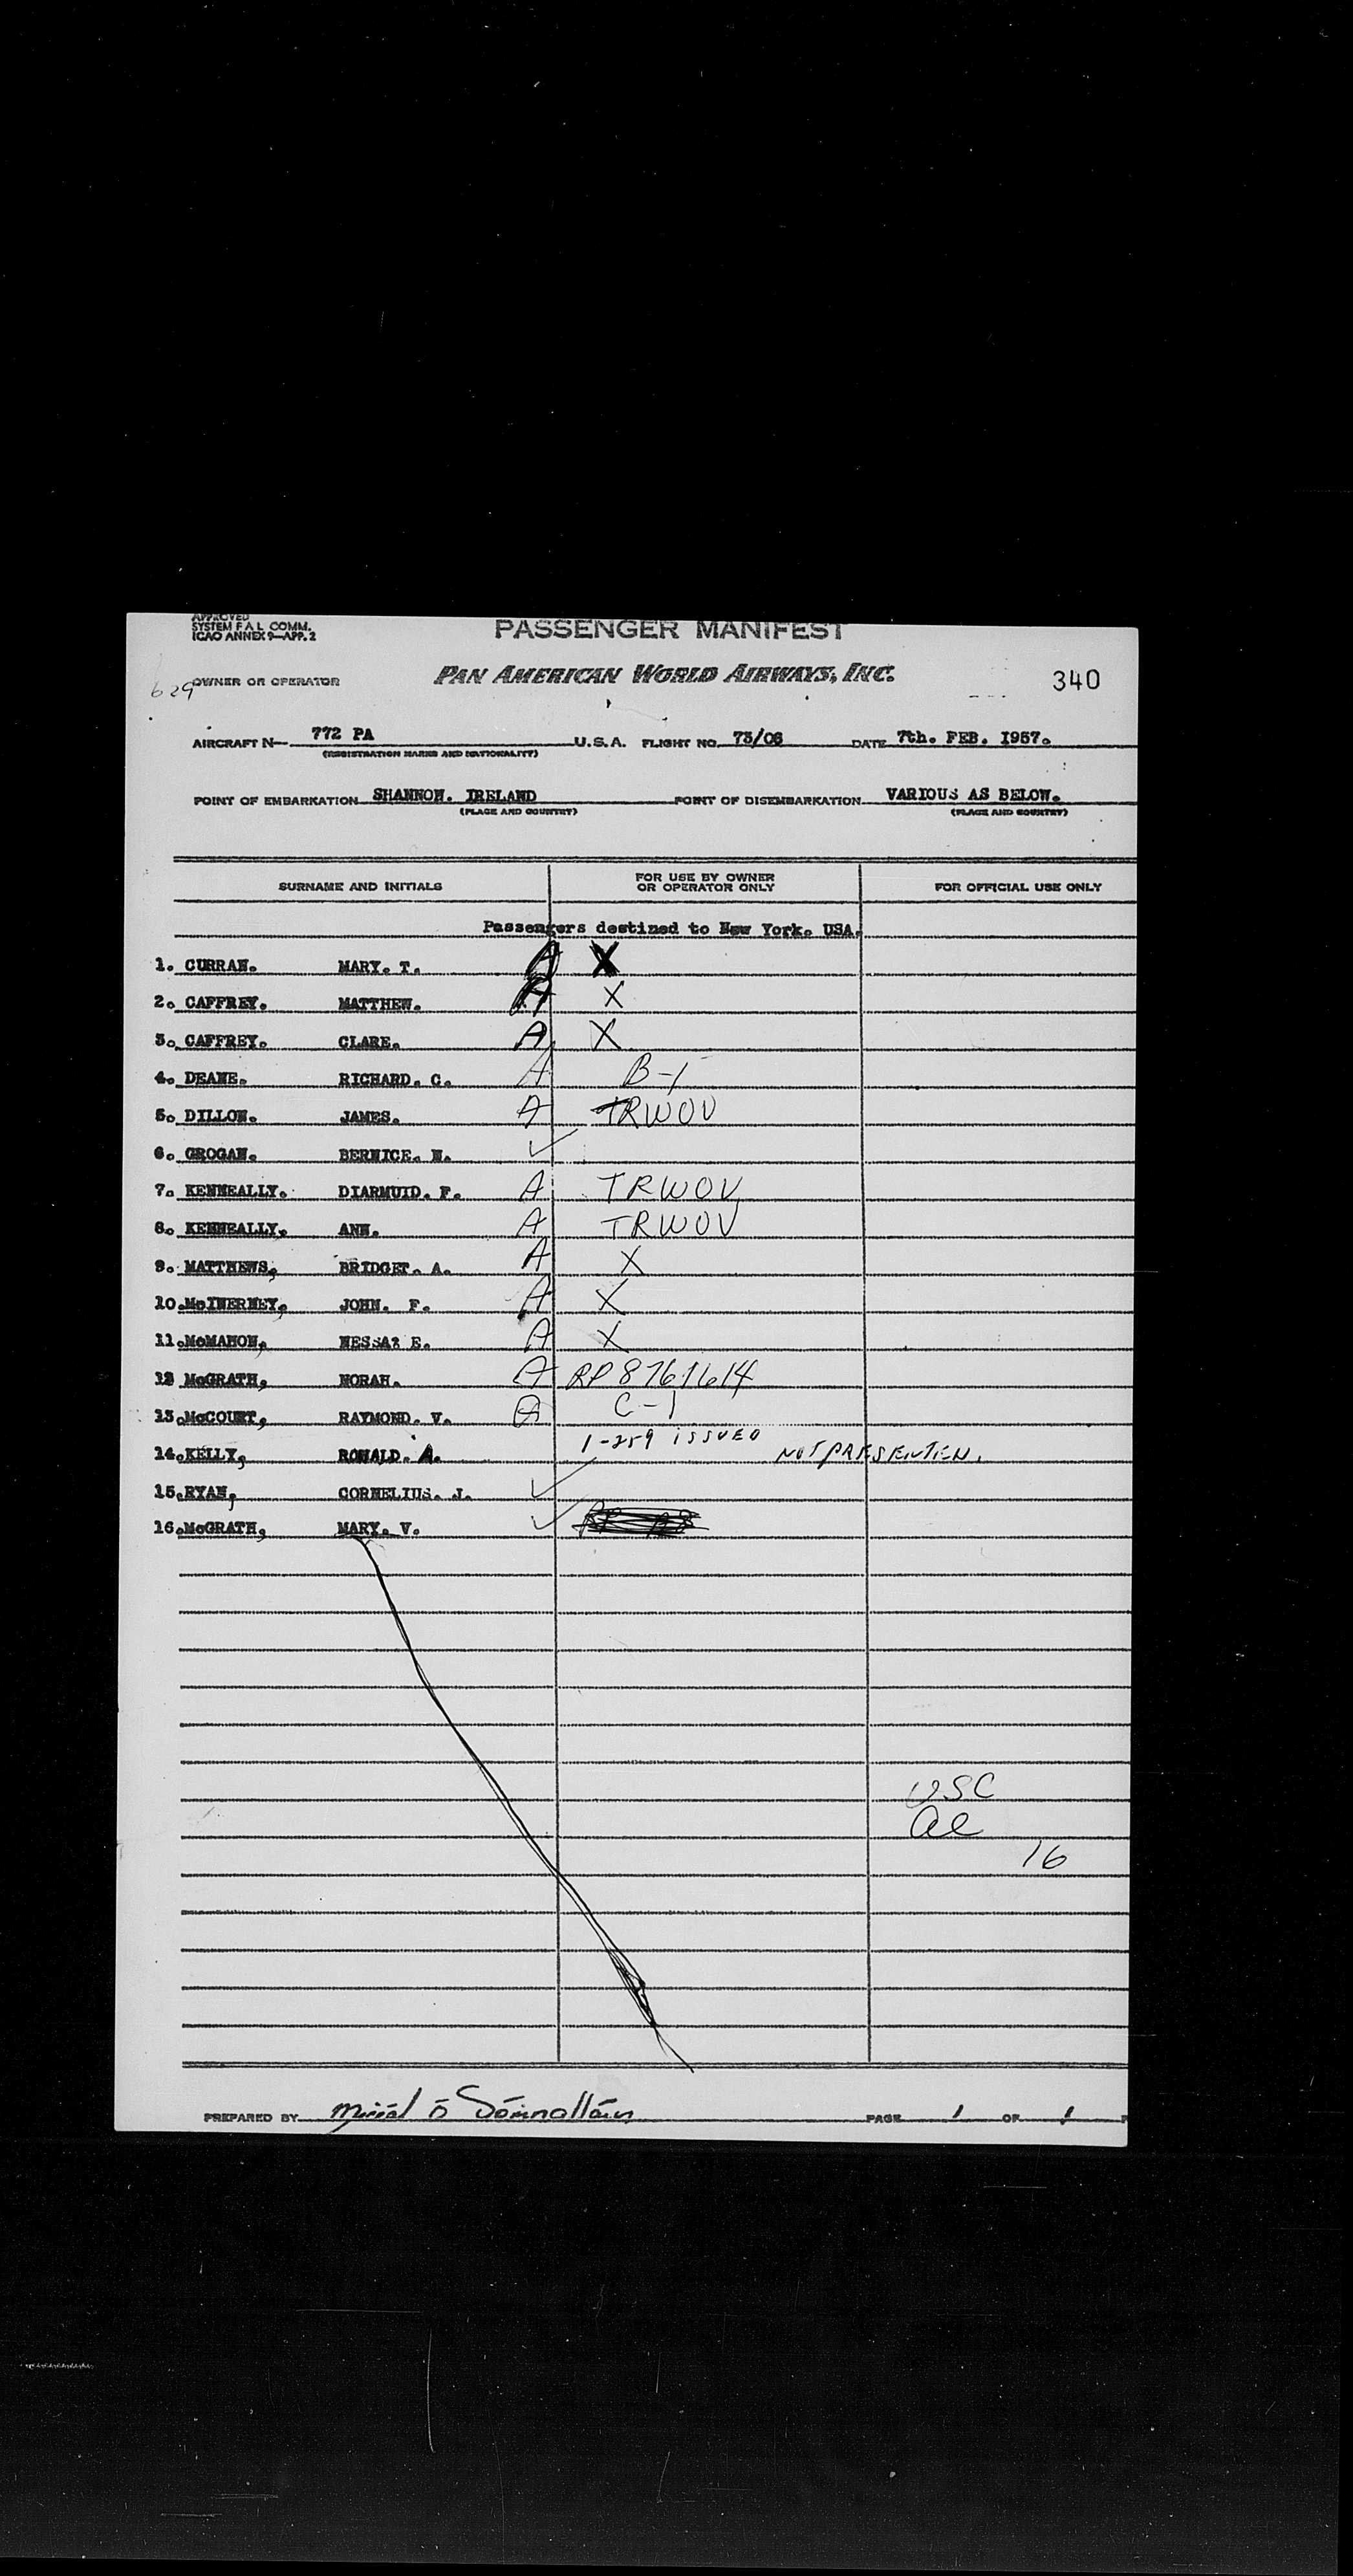 APPROVED
SYSTEM F A L COMM.
ICAO ANNEX 9—APP. 2
PASSENGER MANIFEST
629 OWNER OR OPERATOR
PAN AMERICAN WORLD AIRWAYS, INC.
340
AIRCRAFT N— 772 PA U.S.A. FLIGHT NO. 73/06 DATE 7th. FEB. 1957.
(REGISTRATION MARKS AND NATIONALITY)
POINT OF EMBARKATION SHANNON. IRELAND POINT OF DISEMBARKATION VARIOUS AS BELOW.
(PLACE AND COUNTRY) (PLACE AND COUNTRY)
SURNAME AND INITIALS FOR USE BY OWNER OR OPERATOR ONLY FOR OFFICIAL USE ONLY
Passengers destined to New York. USA.
1. CURRAN. MARY. T. A X
2. CAFFREY. MATTHEW. A X
3. CAFFREY. CLARE. A X
4. DEANE. RICHARD. C. A B-1
5. DILLON. JAMES. A TRWOV
6. GROGAN. BERNICE. N. ✓
7. KENNEALLY. DIARMUID. F. A TRWOV
8. KENNEALLY, ANN. A TRWOV
9. MATTHEWS, BRIDGET. A. A X
10. McINERNEY, JOHN. F. A X
11. McMAHON, NESSA: E. A X
12 McGRATH, NORAH. A RP 8761614
13. McCOURT, RAYMOND. V. A C-1
14. KELLY, RONALD. A. 1-259 ISSUED NOT PRESENTED.
15. RYAN, CORNELIUS. J. ✓
16. McGRATH, MARY. V. ✓
USC
al
16
PREPARED BY
PAGE 1 OF 1